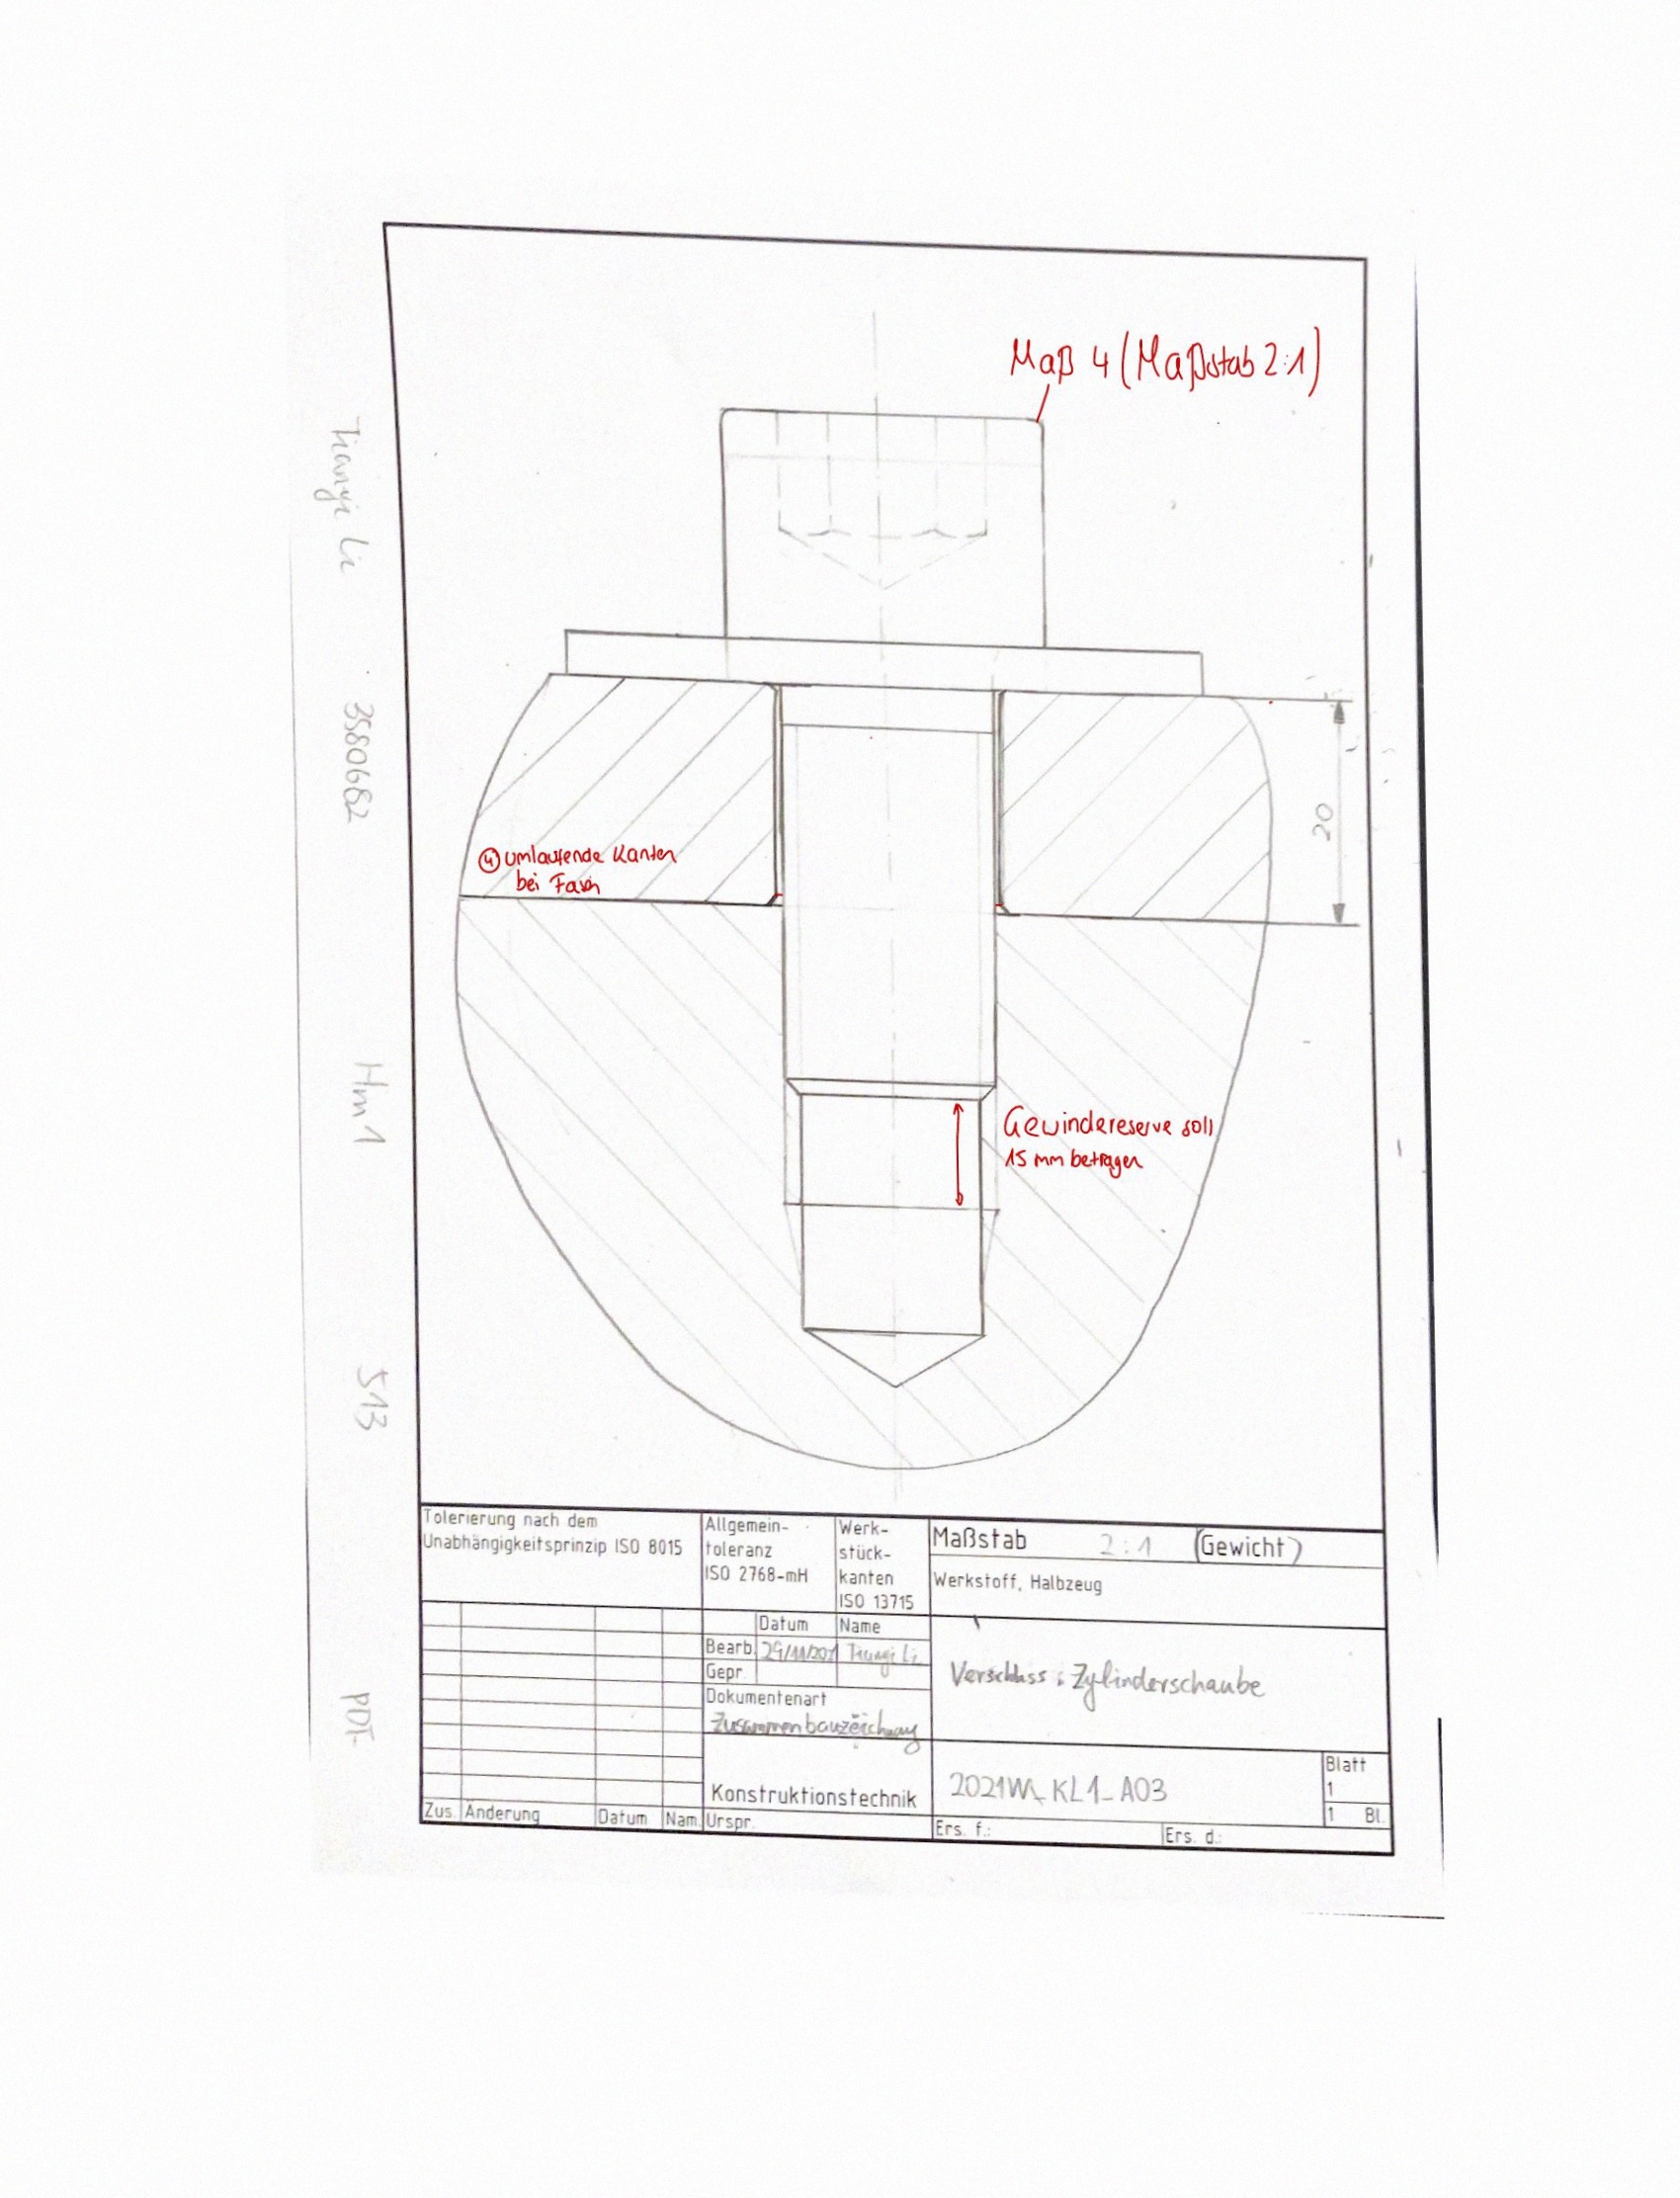 Maß 4 (Maßstab 2:1)
20
④ umlaufende Kanten
bei Fasen
Gewindereserve soll
15 mm betragen
Tianyi Li
3580682
Hm 1
513
PDF
Tolerierung nach dem
Unabhängigkeitsprinzip ISO 8015
Allgemein-
toleranz
ISO 2768-mH
Werk-
stück-
kanten
ISO 13715
Maßstab 2:1 (Gewicht)
Werkstoff, Halbzeug
Datum Name
Bearb. Tianyi Li
Gepr.
Dokumentenart
Zusammenbauzeichnung
Verschluss: Zylinderschaube
Konstruktionstechnik
KL1_A03
Blatt
1
1 Bl.
Zus. Änderung Datum Nam. Urspr. Ers. f.: Ers. d.: